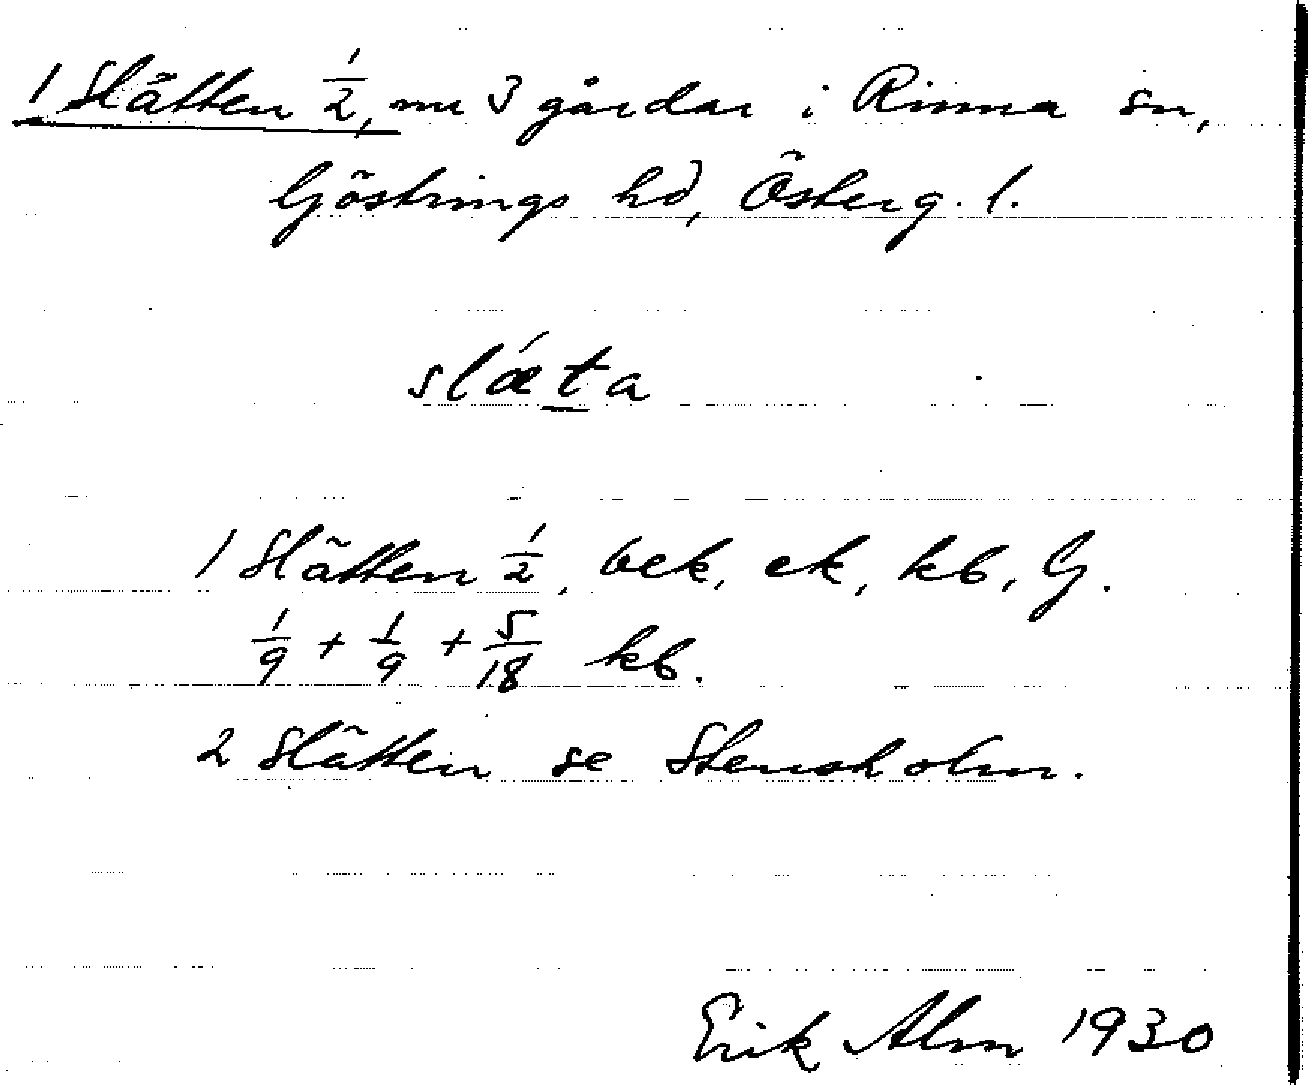 1 Slätten 1/2, nu 3 gårdar i Rinna sn,
Göstrings hd, Österg. l.
slǽta
1 Slätten 1/2, bek, ek, kb, G.
1/9 + 1/9 + 5/18 kb.
2 Slätten se Stensholm.
Erik Alm 1930